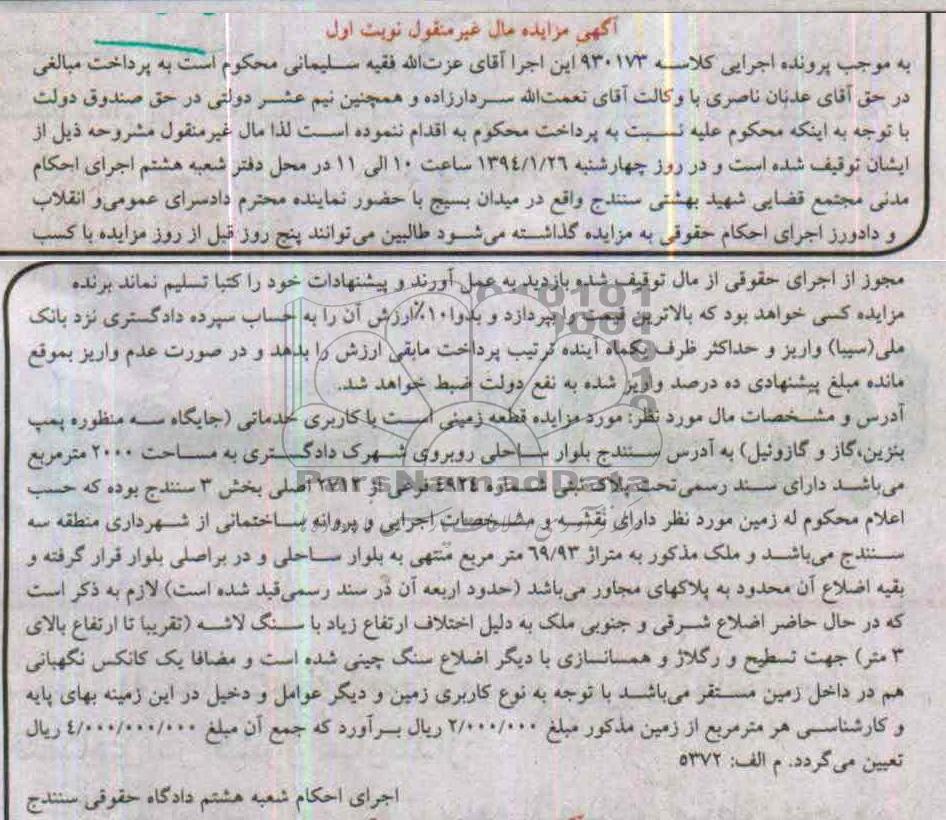 آگهی مزایده مال غیرمنقول نوبت اول
به موجب پرونده اجرایی کلاسه ۹۳۰۱۷۳ این اجرا آقای عزت‌الله فقیه سلیمانی محکوم است به پرداخت مبالغی
در حق آقای عدنان ناصری با وکالت آقای نعمت‌الله سردارزاده و همچنین نیم عشر دولتی در حق صندوق دولت
با توجه به اینکه محکوم علیه نسبت به پرداخت محکوم به اقدام ننموده است لذا مال غیرمنقول مشروحه ذیل از
ایشان توقیف شده است و در روز چهارشنبه ۱۳۹٤/۱/۲٦ ساعت ۱۰ الی ۱۱ در محل دفتر شعبه هشتم اجرای احکام
مدنی مجتمع قضایی شهید بهشتی سنندج واقع در میدان بسیج با حضور نماینده محترم دادسرای عمومی و انقلاب
و دادورز اجرای احکام حقوقی به مزایده گذاشته می‌شود طالبین می‌توانند پنج روز قبل از روز مزایده با کسب
مجوز از اجرای حقوقی از مال توقیف شده بازدید به عمل آورند و پیشنهادات خود را کتبا تسلیم نماند برنده
مزایده کسی خواهد بود که بالاترین قیمت را بپردازد و بدوا۱۰٪ارزش آن را به حساب سپرده دادگستری نزد بانک
ملی(سیبا) واریز و حداکثر ظرف یکماه آینده ترتیب پرداخت مابقی ارزش را بدهد و در صورت عدم واریز بموقع
مانده مبلغ پیشنهادی ده درصد واریز شده به نفع دولت ضبط خواهد شد.
آدرس و مشخصات مال مورد نظر: مورد مزایده قطعه زمینی است با کاربری خدماتی (جایگاه سه منظوره پمپ
بنزین،گاز و گازوئیل) به آدرس سنندج بلوار ساحلی روبروی شهرک دادگستری به مساحت ۲۰۰۰ مترمربع
می‌باشد دارای سند رسمی تحت پلاک ثبتی شماره ٤۹۲٤ فرعی از ۲۷۱۲ اصلی بخش ۳ سنندج بوده که حسب
اعلام محکوم له زمین مورد نظر دارای نقشه و مشخصات اجرایی و پروانه ساختمانی از شهرداری منطقه سه
سنندج می‌باشد و ملک مذکور به متراژ ٦۹/۹۳ متر مربع منتهی به بلوار ساحلی و در براصلی بلوار قرار گرفته و
بقیه اضلاع آن محدود به پلاکهای مجاور می‌باشد (حدود اربعه آن در سند رسمی قید شده است) لازم به ذکر است
که در حال حاضر اضلاع شرقی و جنوبی ملک به دلیل اختلاف ارتفاع زیاد با سنگ لاشه (تقریبا تا ارتفاع بالای
۳ متر) جهت تسطیح و رگلاژ و همسانسازی با دیگر اضلاع سنگ چینی شده است و مضافا یک کانکس نگهبانی
هم در داخل زمین مستقر می‌باشد با توجه به نوع کاربری زمین و دیگر عوامل و دخیل در این زمینه بهای پایه
و کارشناسی هر مترمربع از زمین مذکور مبلغ ۲/۰۰۰/۰۰۰ ریال برآورد که جمع آن مبلغ ٤/۰۰۰/۰۰۰/۰۰۰ ریال
تعیین می‌گردد. م الف: ۵۳۷۲
اجرای احکام شعبه هشتم دادگاه حقوقی سنندج
ParsNamadData